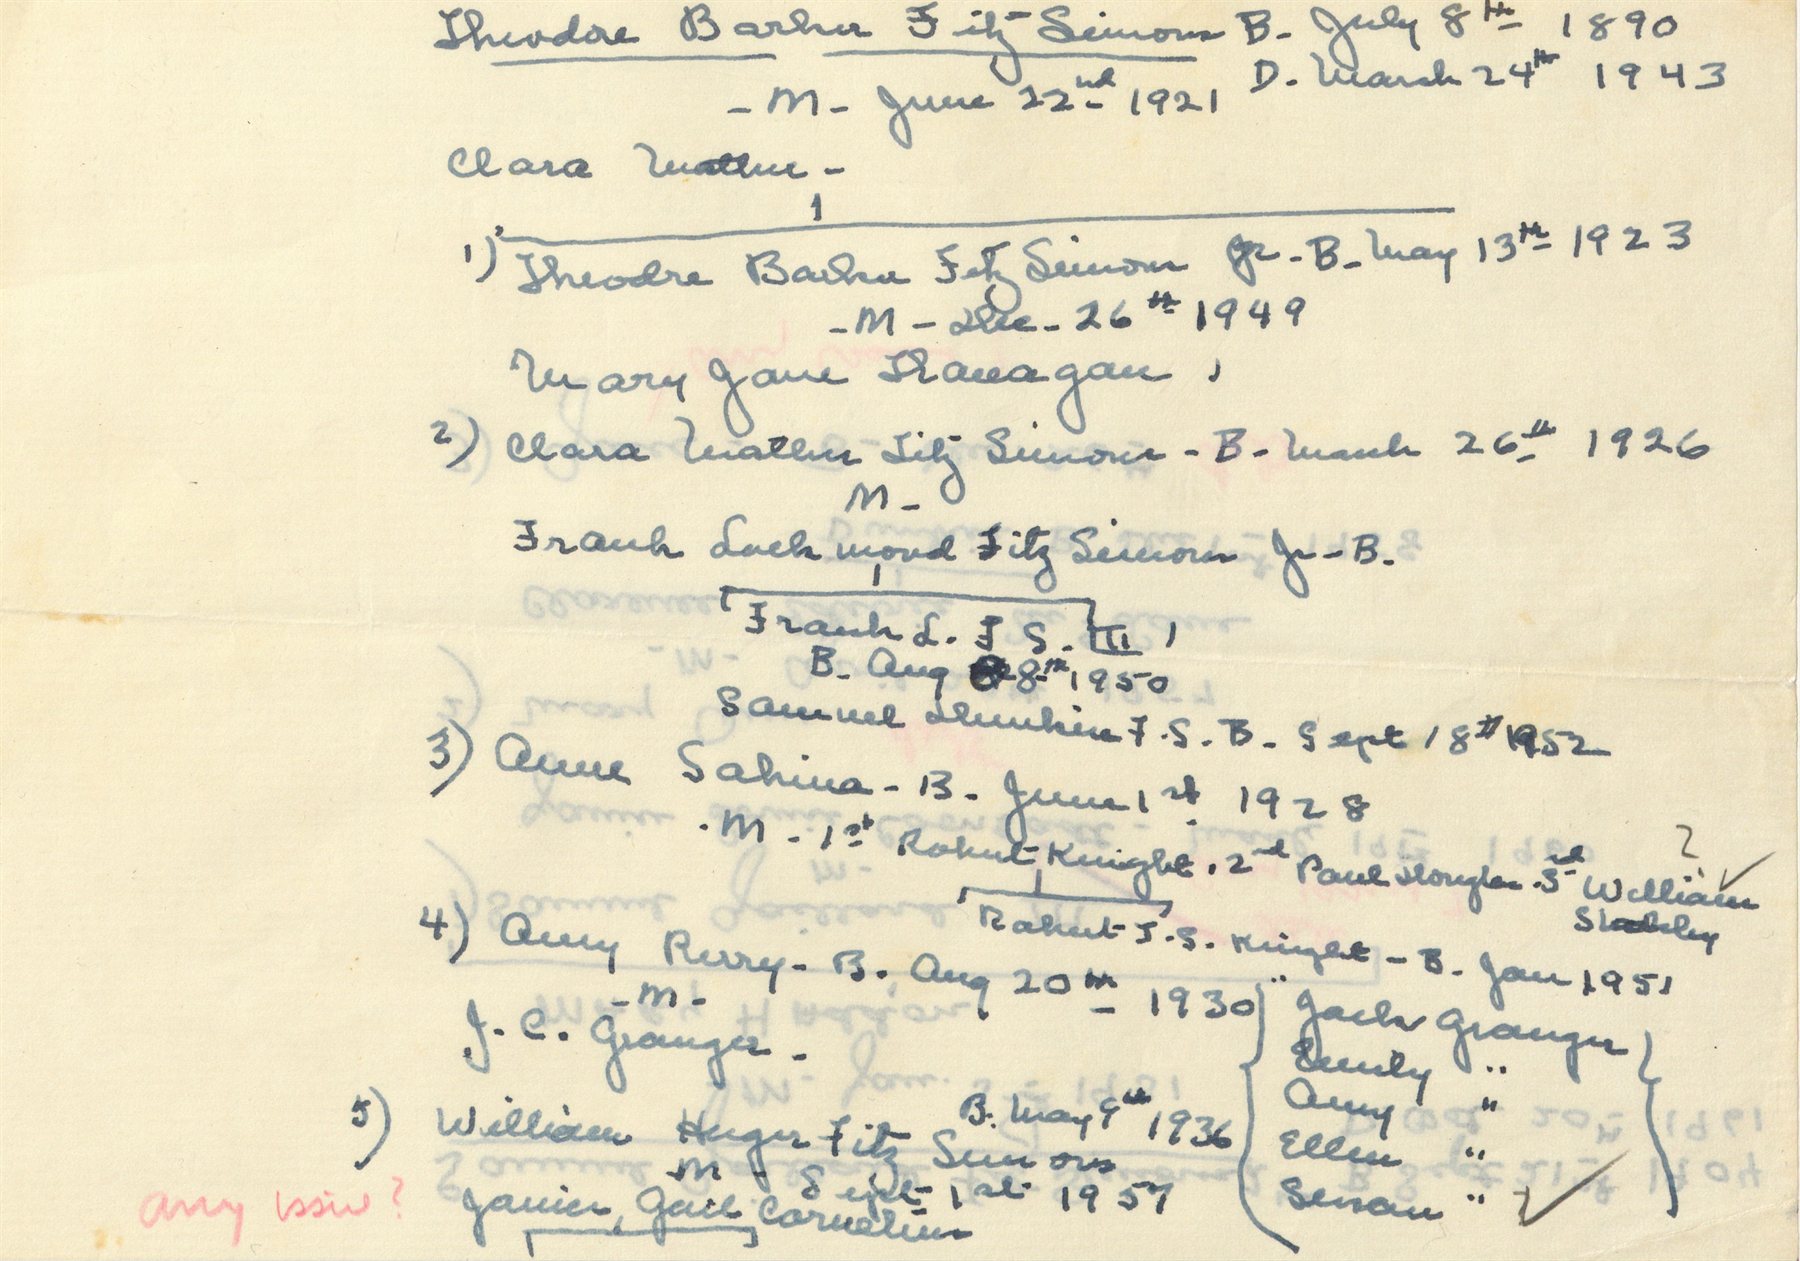 Theodore Barker FitzSimons B. July 8th 1890
D. March 24th 1943
- M - June 22nd 1921
Clara Mather -
1) Theodore Barker FitzSimons Jr - B - May 13th 1923
- M - Dec - 26th 1949
Mary Jane Flanagan
2) Clara Mather FitzSimons - B - March 26th 1926
M -
Frank Lockwood FitzSimons Jr - B.
Frank L. F. S. III
B. Aug 8th 1950
Samuel F. S. B - Sept 18th 1952
3) Anne Sabina - B - June 1st 1928
?
. M - 1st Robert Knight . 2nd Paul . 3rd William
Robert F. S. Knight - B - Jan 1951
4) Amy Perry - B. Aug 20th 1930
- M -
J. C. Granger -
" Jack Granger
Emily "
Amy "
Ellen "
Susan "
5) William Huger FitzSimons B. May 9th 1936
M - Sept 1st 1957
Janice, Gail Cornelius
any issue?